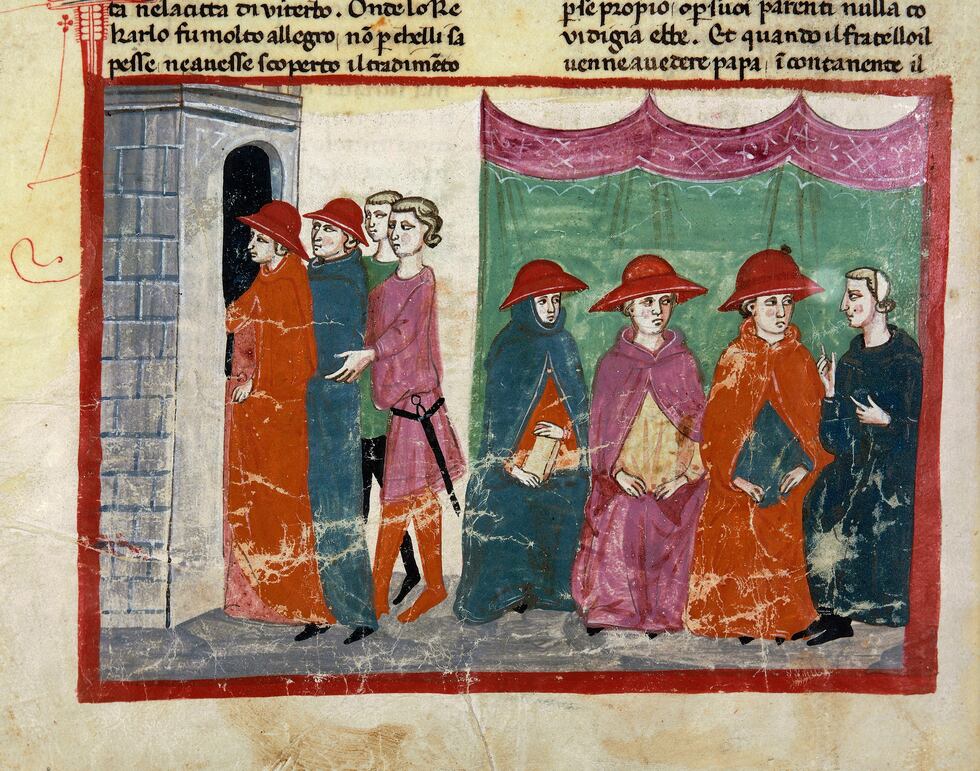 ta nelacitta di viterbo. Onde lo Re
karlo fu molto allegro, nō p chelli sa
pesse neauesse scoperto il tradimēto
pse propio, o psuoi parenti nulla co
vidigia ebbe. Et quando il fratello il
uenne auedere papa, īcontanente il